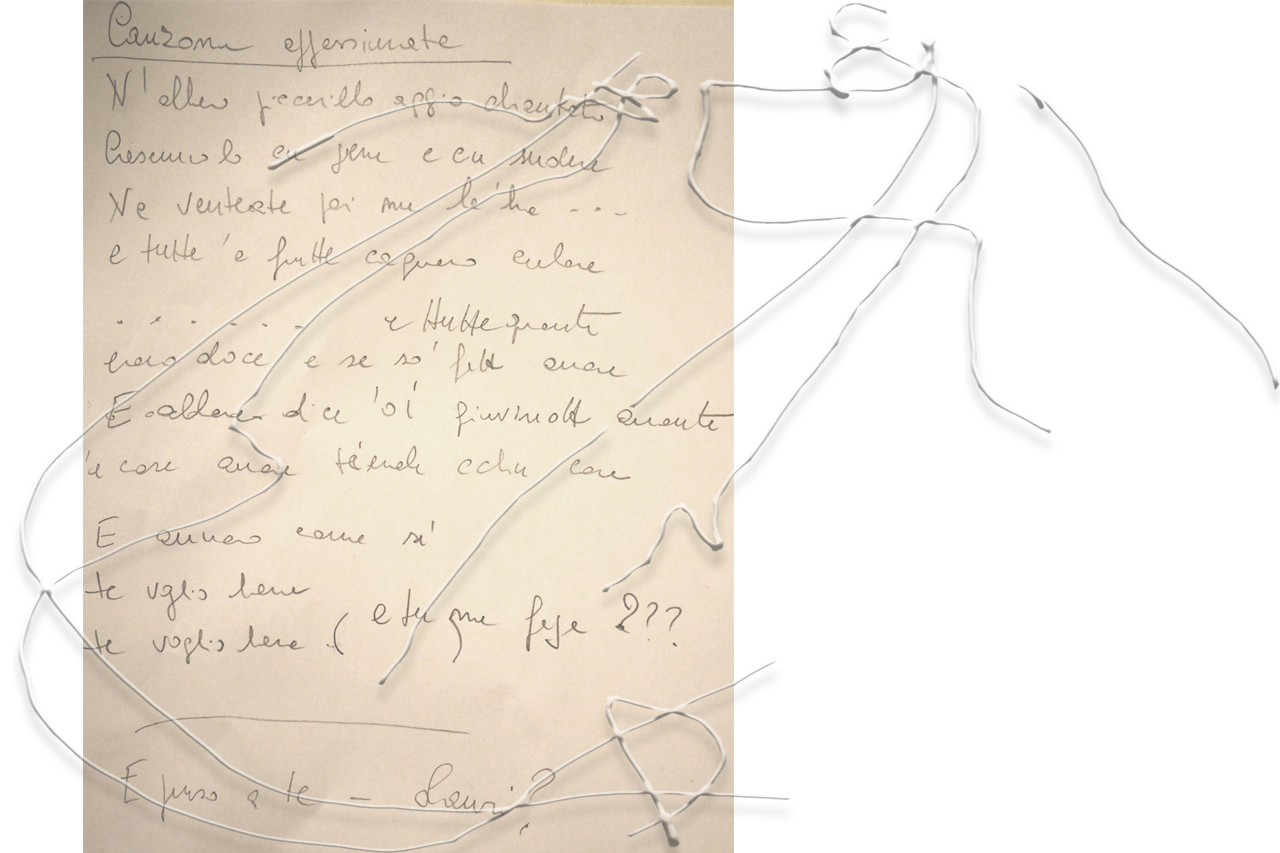 Canzona affessiunata
N'albero piccerillo aggio chiantato
Criscenno lo cu pene e cu sudore
Na ventecata poi me le'ha ...
e tutte 'e frutte cagnaro culore
....... e ttutte quante
erano doce e se so' fatt amare
E o core dice 'oi giuvinott amante
'e cose amare tienele cchiu care
E amara come si'
te voglio bene
te voglio bene (e tu me faje ???)
E penso a te –